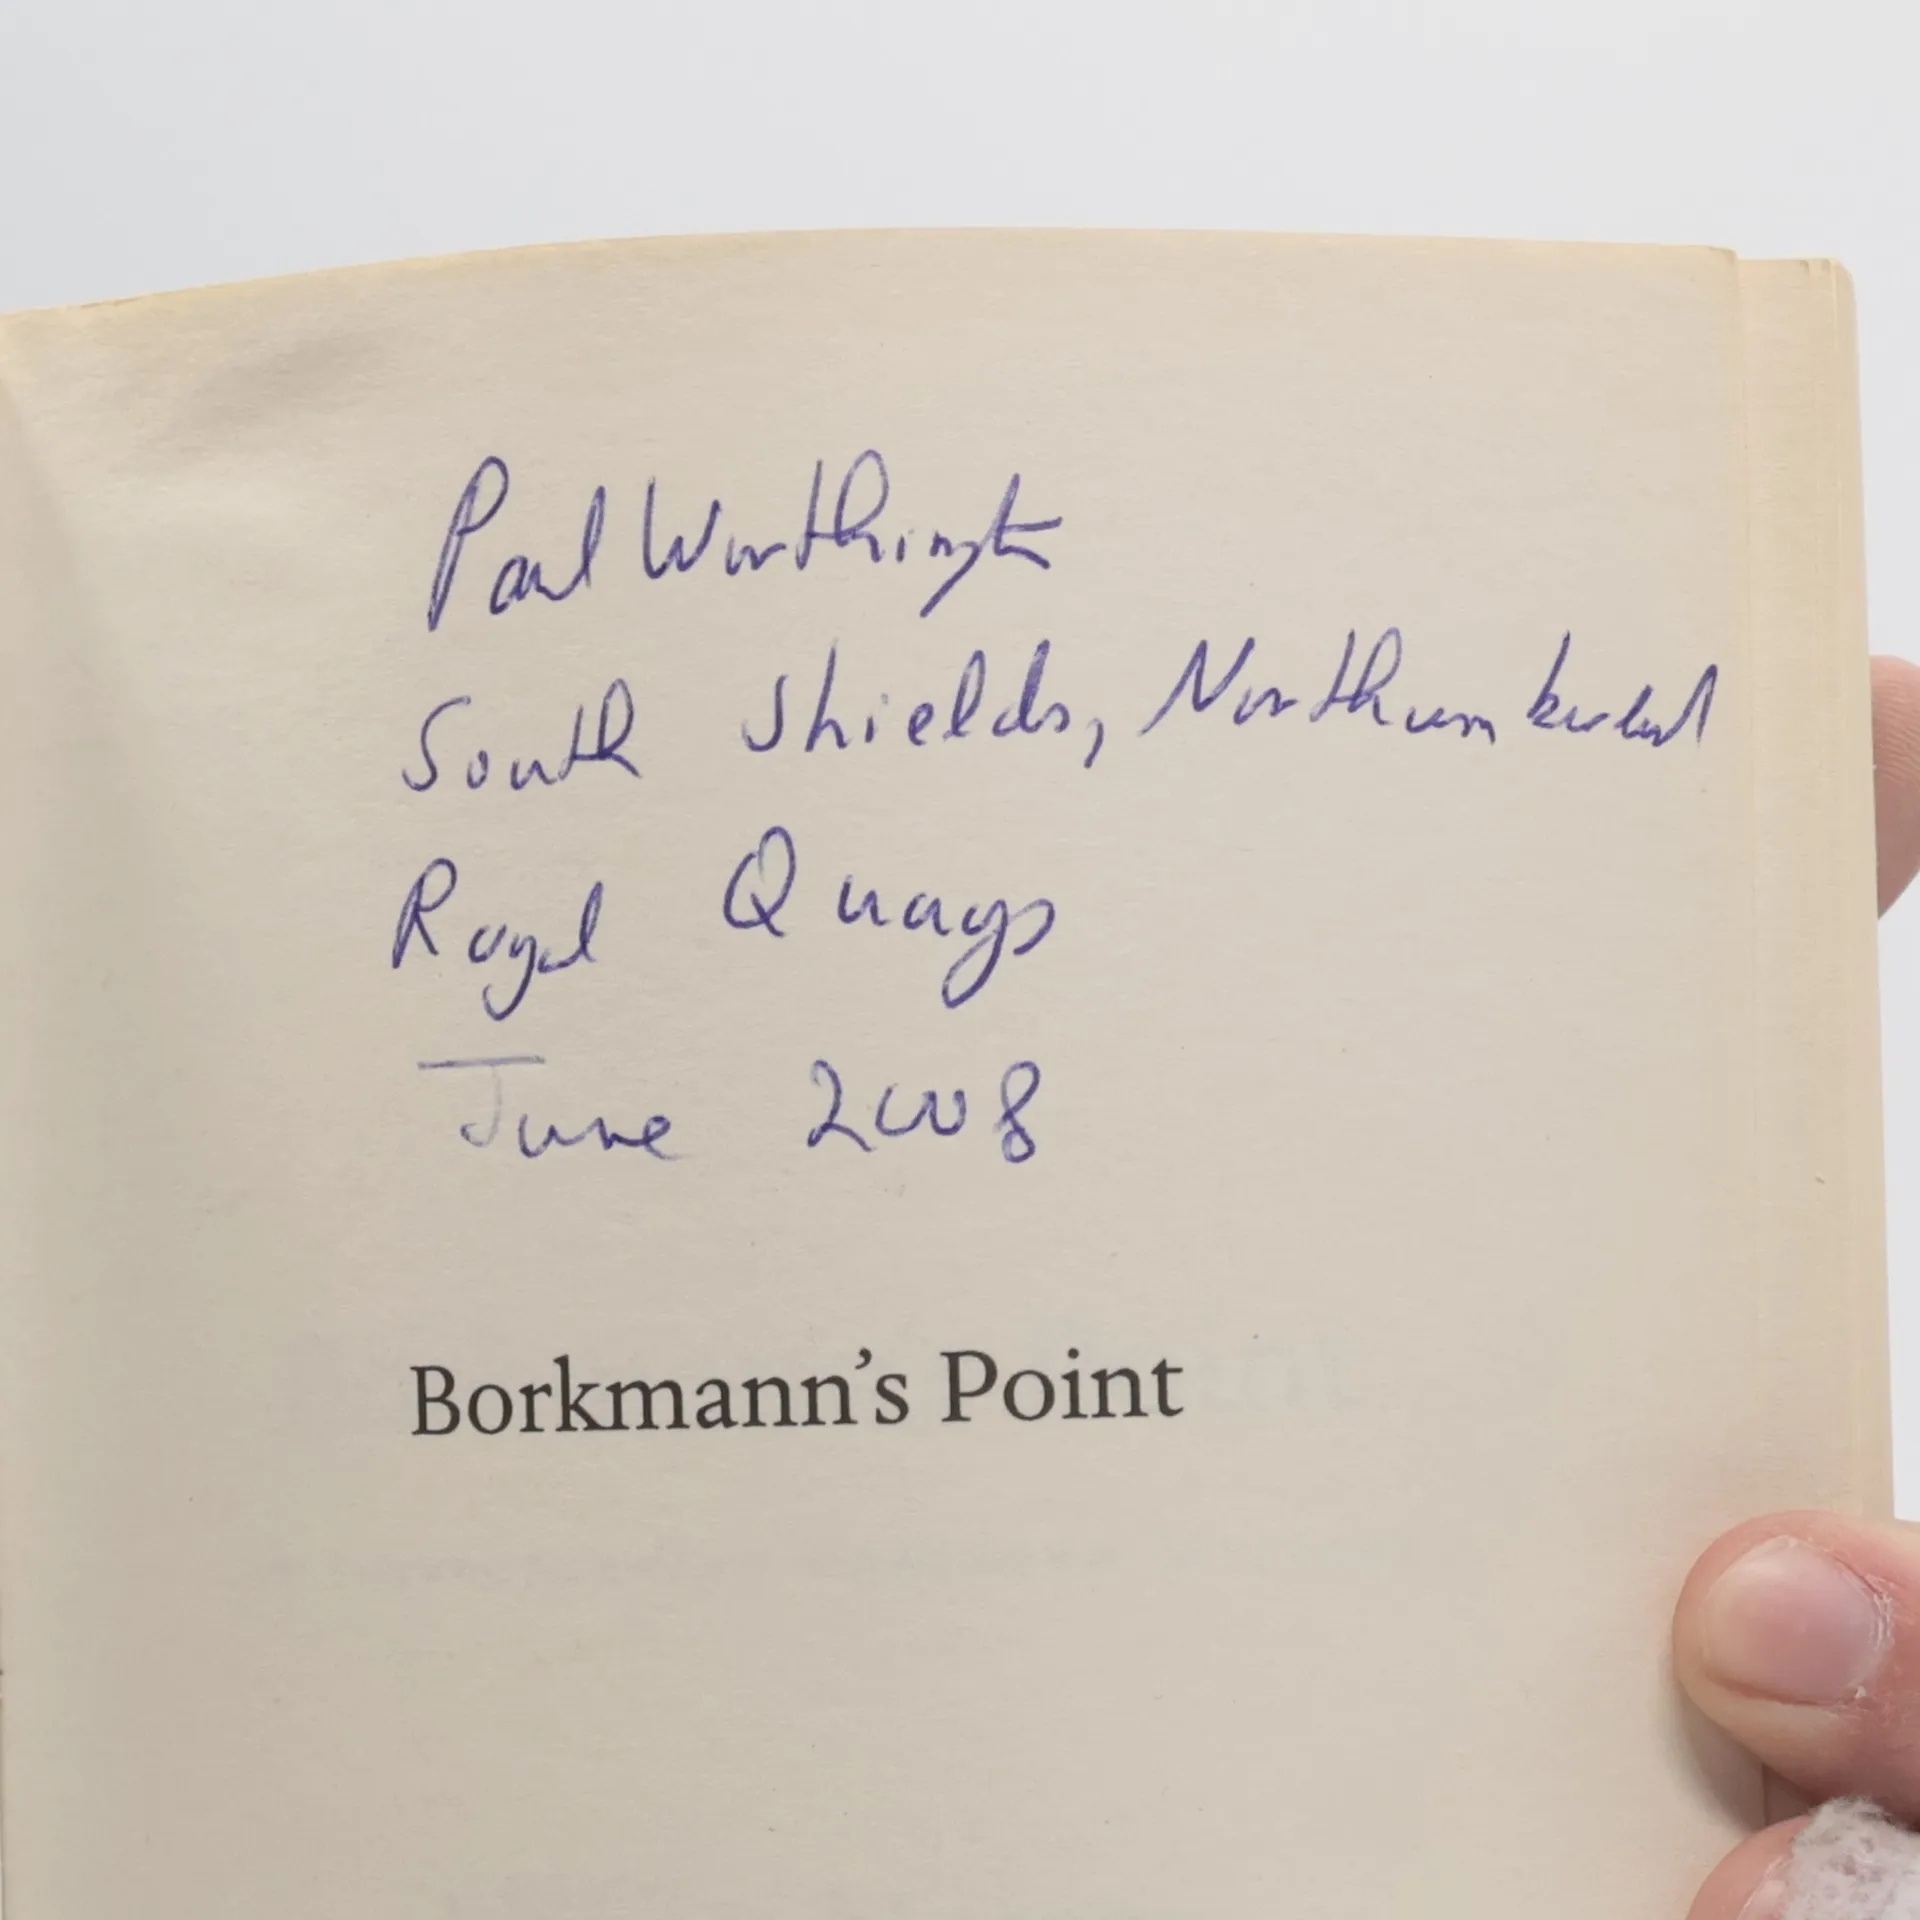 Paul Worthington
South Shields, Northumberland
Royal Quays
June 2008
Borkmann's Point